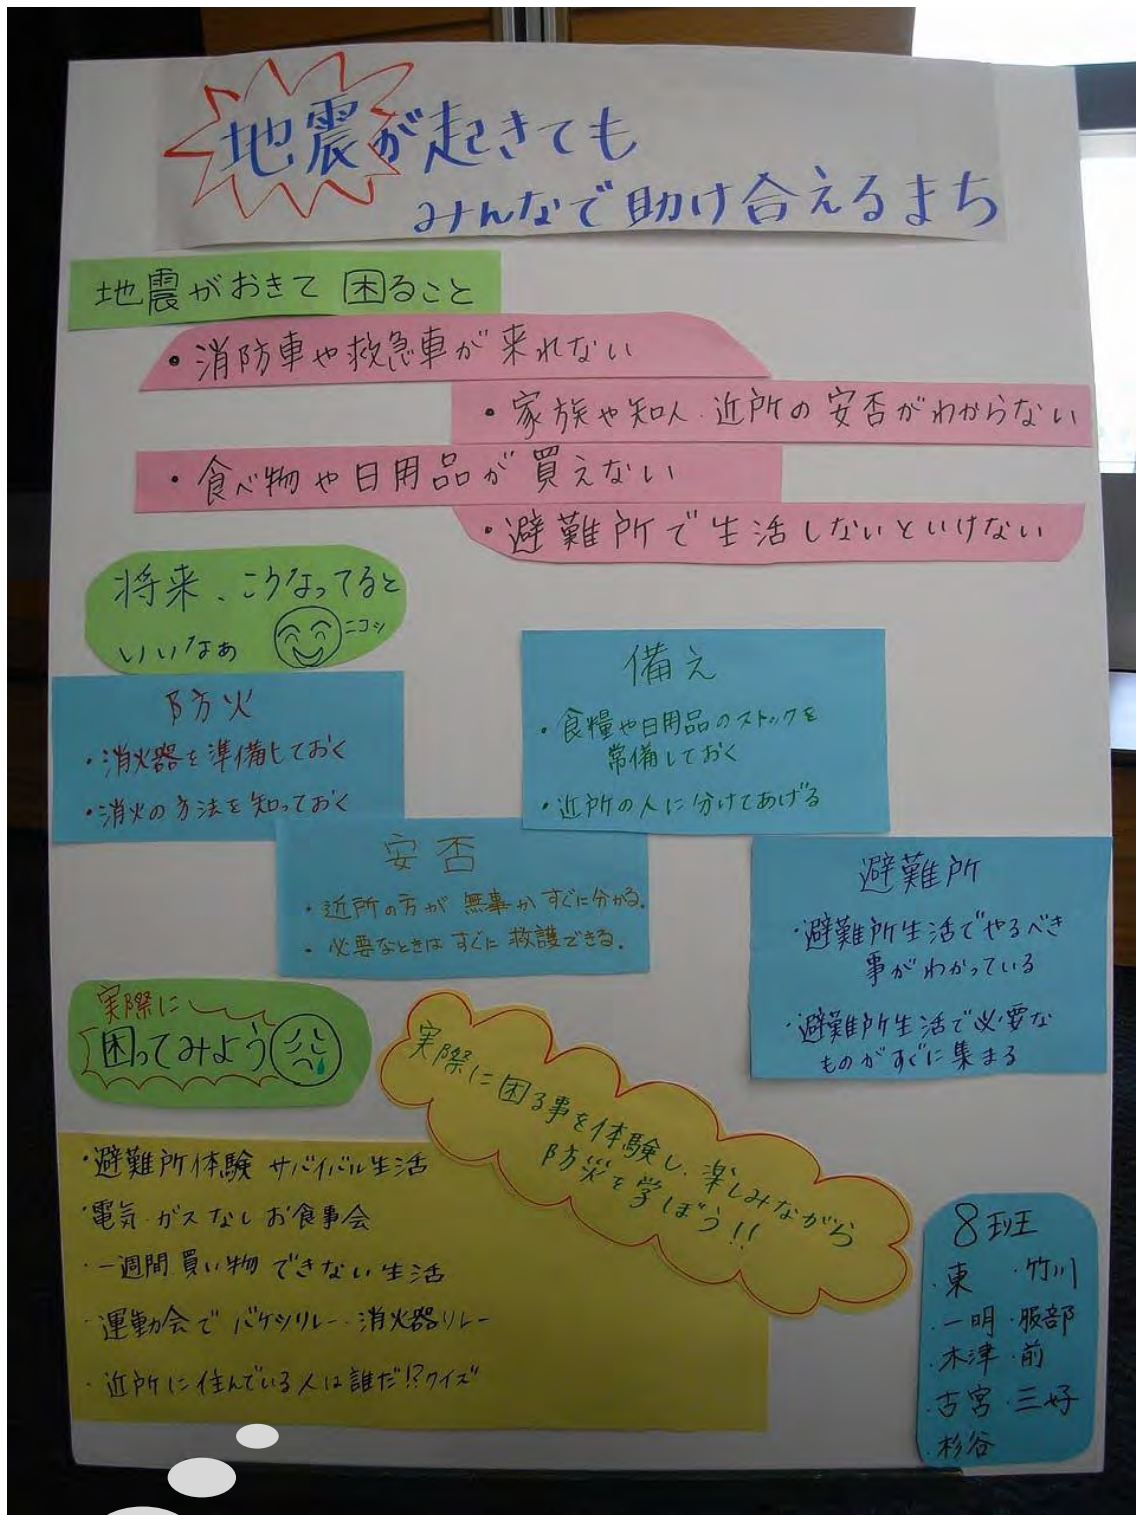 地震が起きても
みんなで助け合えるまち
地震がおきて 困ること
・消防車や救急車が来れない
・家族や知人、近所の安否がわからない
・食べ物や日用品が買えない
・避難所で生活しないといけない
将来、こうなってると
いいなぁ
ニコッ
防火
・消火器を準備しておく
・消火の方法を知っておく
備え
・食糧や日用品のストックを
常備しておく
・近所の人に分けてあげる
安否
・近所の方が無事かすぐに分かる。
・必要なときはすぐに救護できる。
避難所
・避難所生活でやるべき
事がわかっている
・避難所生活で必要な
ものがすぐに集まる
実際に
困ってみよう
実際に困る事を体験し、楽しみながら
防災を学ぼう!!
・避難所体験 サバイバル生活
・電気・ガスなしお食事会
・一週間買い物できない生活
・運動会でバケツリレー・消火器リレー
・近所に住んでいる人は誰だ!?クイズ
8班
・東 ・竹川
・一明 ・服部
・木津 ・前
・古宮 ・三好
・杉谷